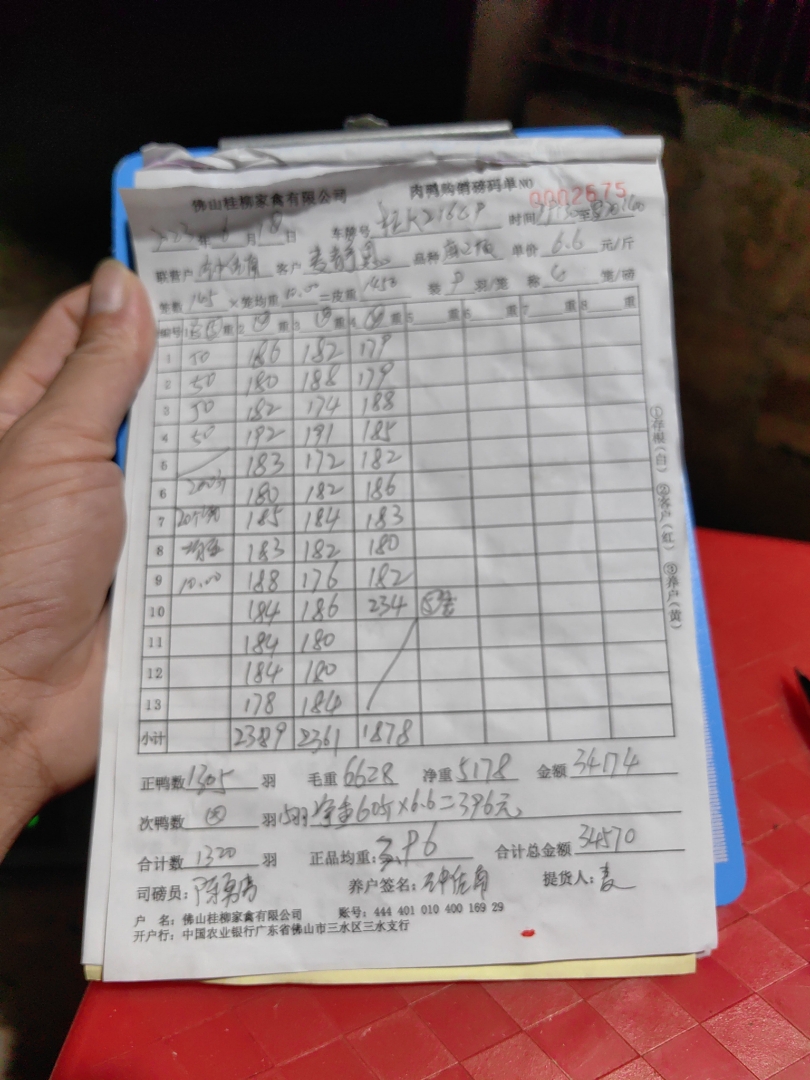 佛山桂柳家禽有限公司 肉鸭购销磅码单 NO 0002675
2023年6月18日 车牌号 时间 至
联营户 客户 品种 单价 6.6 元/斤
笼数 145 ×笼均重 10.00 =皮重 1450 装 9 羽/笼 称 笼/磅
编号 1 重 2 重 3 重 4 重 5 重 6 重 7 重 8 重
1 50 186 182 179
2 50 180 188 179
3 50 182 174 188
4 50 192 191 185
5 183 172 182
6 200斤 180 182 186
7 20个笼 185 184 183
8 均重 183 182 180
9 10.00 188 176 182
10 184 186 234
11 184 180
12 184 180
13 178 184
小计 2389 2361 1878
正鸭数 1305 羽 毛重 6628 净重 5178 金额 34174
次鸭数 羽 15羽 净重60斤×6.6=396元
合计数 1320 羽 正品均重: 3.96 合计总金额 34570
司磅员: 养户签名: 提货人: 麦
户 名: 佛山桂柳家禽有限公司 账号: 444 401 010 400 169 29
开户行: 中国农业银行广东省佛山市三水区三水支行
①存根(白) ②客户(红) ③养户(黄)